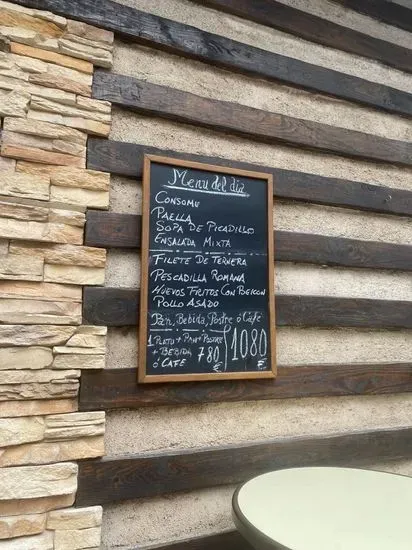 Menu del dia
CONSOME
PAELLA
SOPA DE PICADILLO
ENSALADA MIXTA
FILETE DE TERNERA
PESCADILLA ROMANA
HUEVOS FRITOS CON BEICON
POLLO ASADO
Pan, Bebida, Postre ó Café
1 PLATO + PAN + POSTRE
+ BEBIDA 780 1080
ó CAFE € €